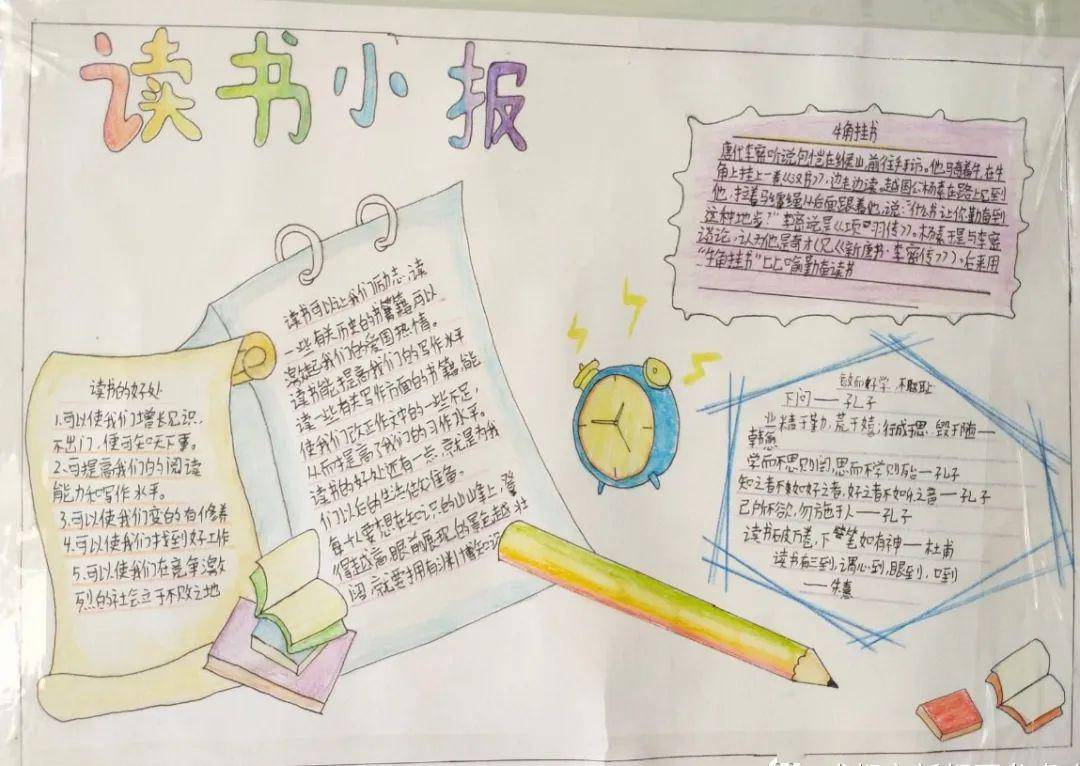 读书小报
读书的好处
1.可以使我们增长见识,
不出门,便可知天下事。
2.可提高我们的阅读
能力和写作水平。
3.可以使我们变的有修养
4.可以使我们找到好工作
5.可以使我们在竞争激
烈的社会立于不败之地
读书可以让我们励志,读
一些有关历史的书籍,可以
激起我们的爱国热情。
读书能提高我们的写作水平
读一些有关写作方面的书籍,能
使我们改正作文中的一些不足,
从而提高了我们的习作水平。
读书的好处还有一点,就是为我
们以后的生活做好准备。
每个人要想在知识的山峰上,登
得越高,眼前展现的景色越壮
阔,就要拥有渊博的知识
牛角挂书
唐代李密听说包恺在缑山,前往拜访。他骑着牛,在牛
角上挂上一卷《汉书》,边走边读。越国公杨素在路上见到
他,拉着马缰绳从后面跟着他,说:“什么书让你勤奋到
这种地步?”李密说是《项羽传》。杨素于是与李密
谈论,认为他是奇才(见《新唐书·李密传》)。后来用
“牛角挂书”比喻勤奋读书
敏而好学,不耻
下问——孔子
业精于勤,荒于嬉;行成于思,毁于随——
韩愈
学而不思则罔,思而不学则殆——孔子
知之者不如好之者,好之者不如乐之者——孔子
己所不欲,勿施于人——孔子
读书破万卷,下笔如有神——杜甫
读书有三到,谓心到,眼到,口到
——朱熹